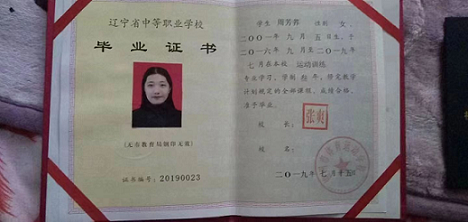 辽宁省中等职业学校
毕业证书
(无市教育局钢印无效)
证书编号: 20190023
学生 性别 女,
二〇〇一年九月五日生,于
二〇一六年九月至二〇一九年
七月在本校 运动训练
专业学习,学制叁年,修完教学
计划规定的全部课程,成绩合格,
准予毕业。
校 长:
校 名:
二〇一九年七月十五日